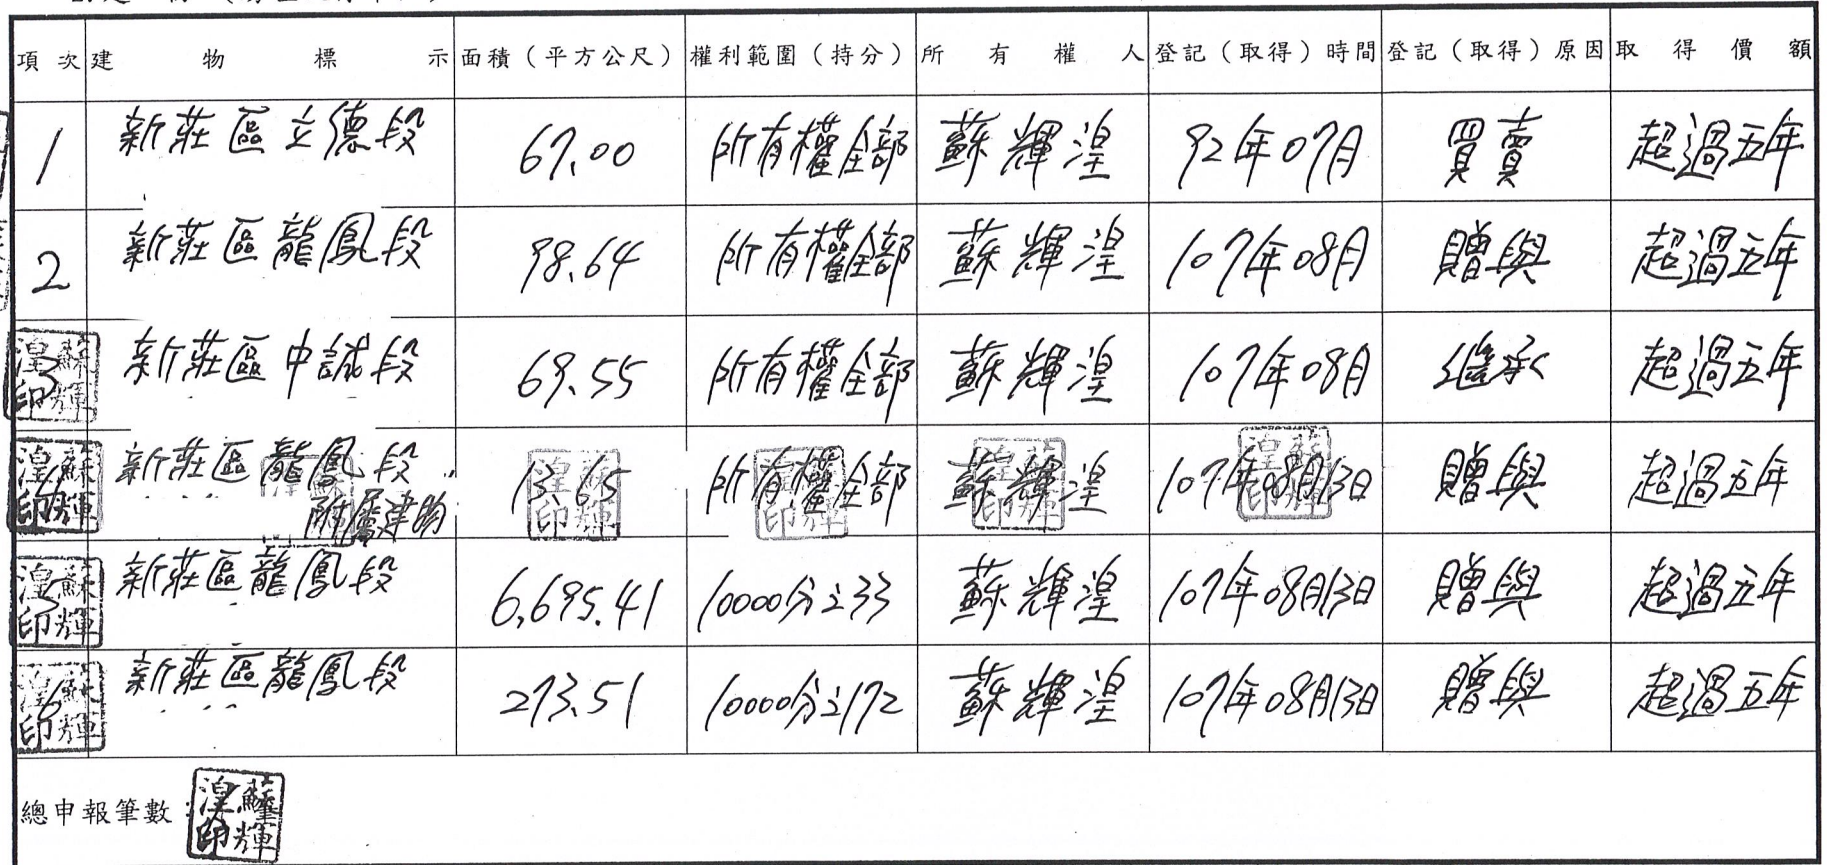 項次 建物標示 面積（平方公尺） 權利範圍（持分） 所有權人 登記（取得）時間 登記（取得）原因 取得價額
1 新莊區立德段 67.00 所有權全部 蘇輝湟 92年07月 買賣 超過五年
2 新莊區龍鳳段 98.64 所有權全部 蘇輝湟 107年08月 贈與 超過五年
3 新莊區中誠段 69.55 所有權全部 蘇輝湟 107年08月 繼承 超過五年
4 新莊區龍鳳段 13.65 所有權全部 蘇輝湟 107年08月13日 贈與 超過五年
附屬建物
5 新莊區龍鳳段 6,695.41 10000分之33 蘇輝湟 107年08月13日 贈與 超過五年
6 新莊區龍鳳段 273.51 10000分之172 蘇輝湟 107年08月13日 贈與 超過五年
總申報筆數：
蘇輝湟印